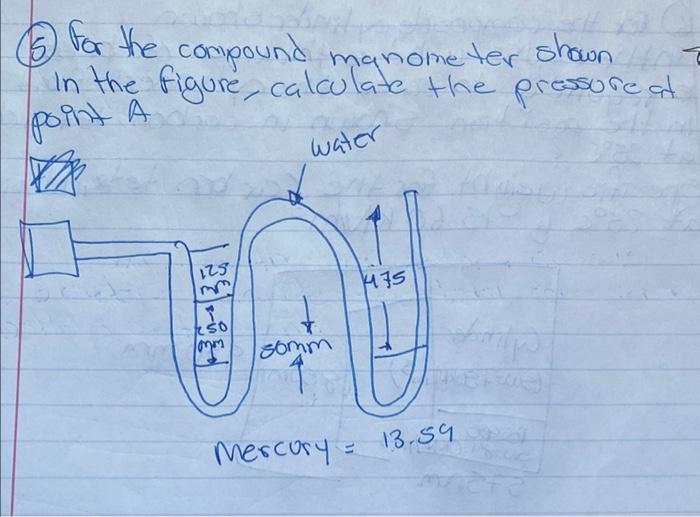 ⑤ For the compound manometer shown
in the figure, calculate the pressure at
point A
water
125
mm
475
250
mm
50mm
Mercury = 13.59